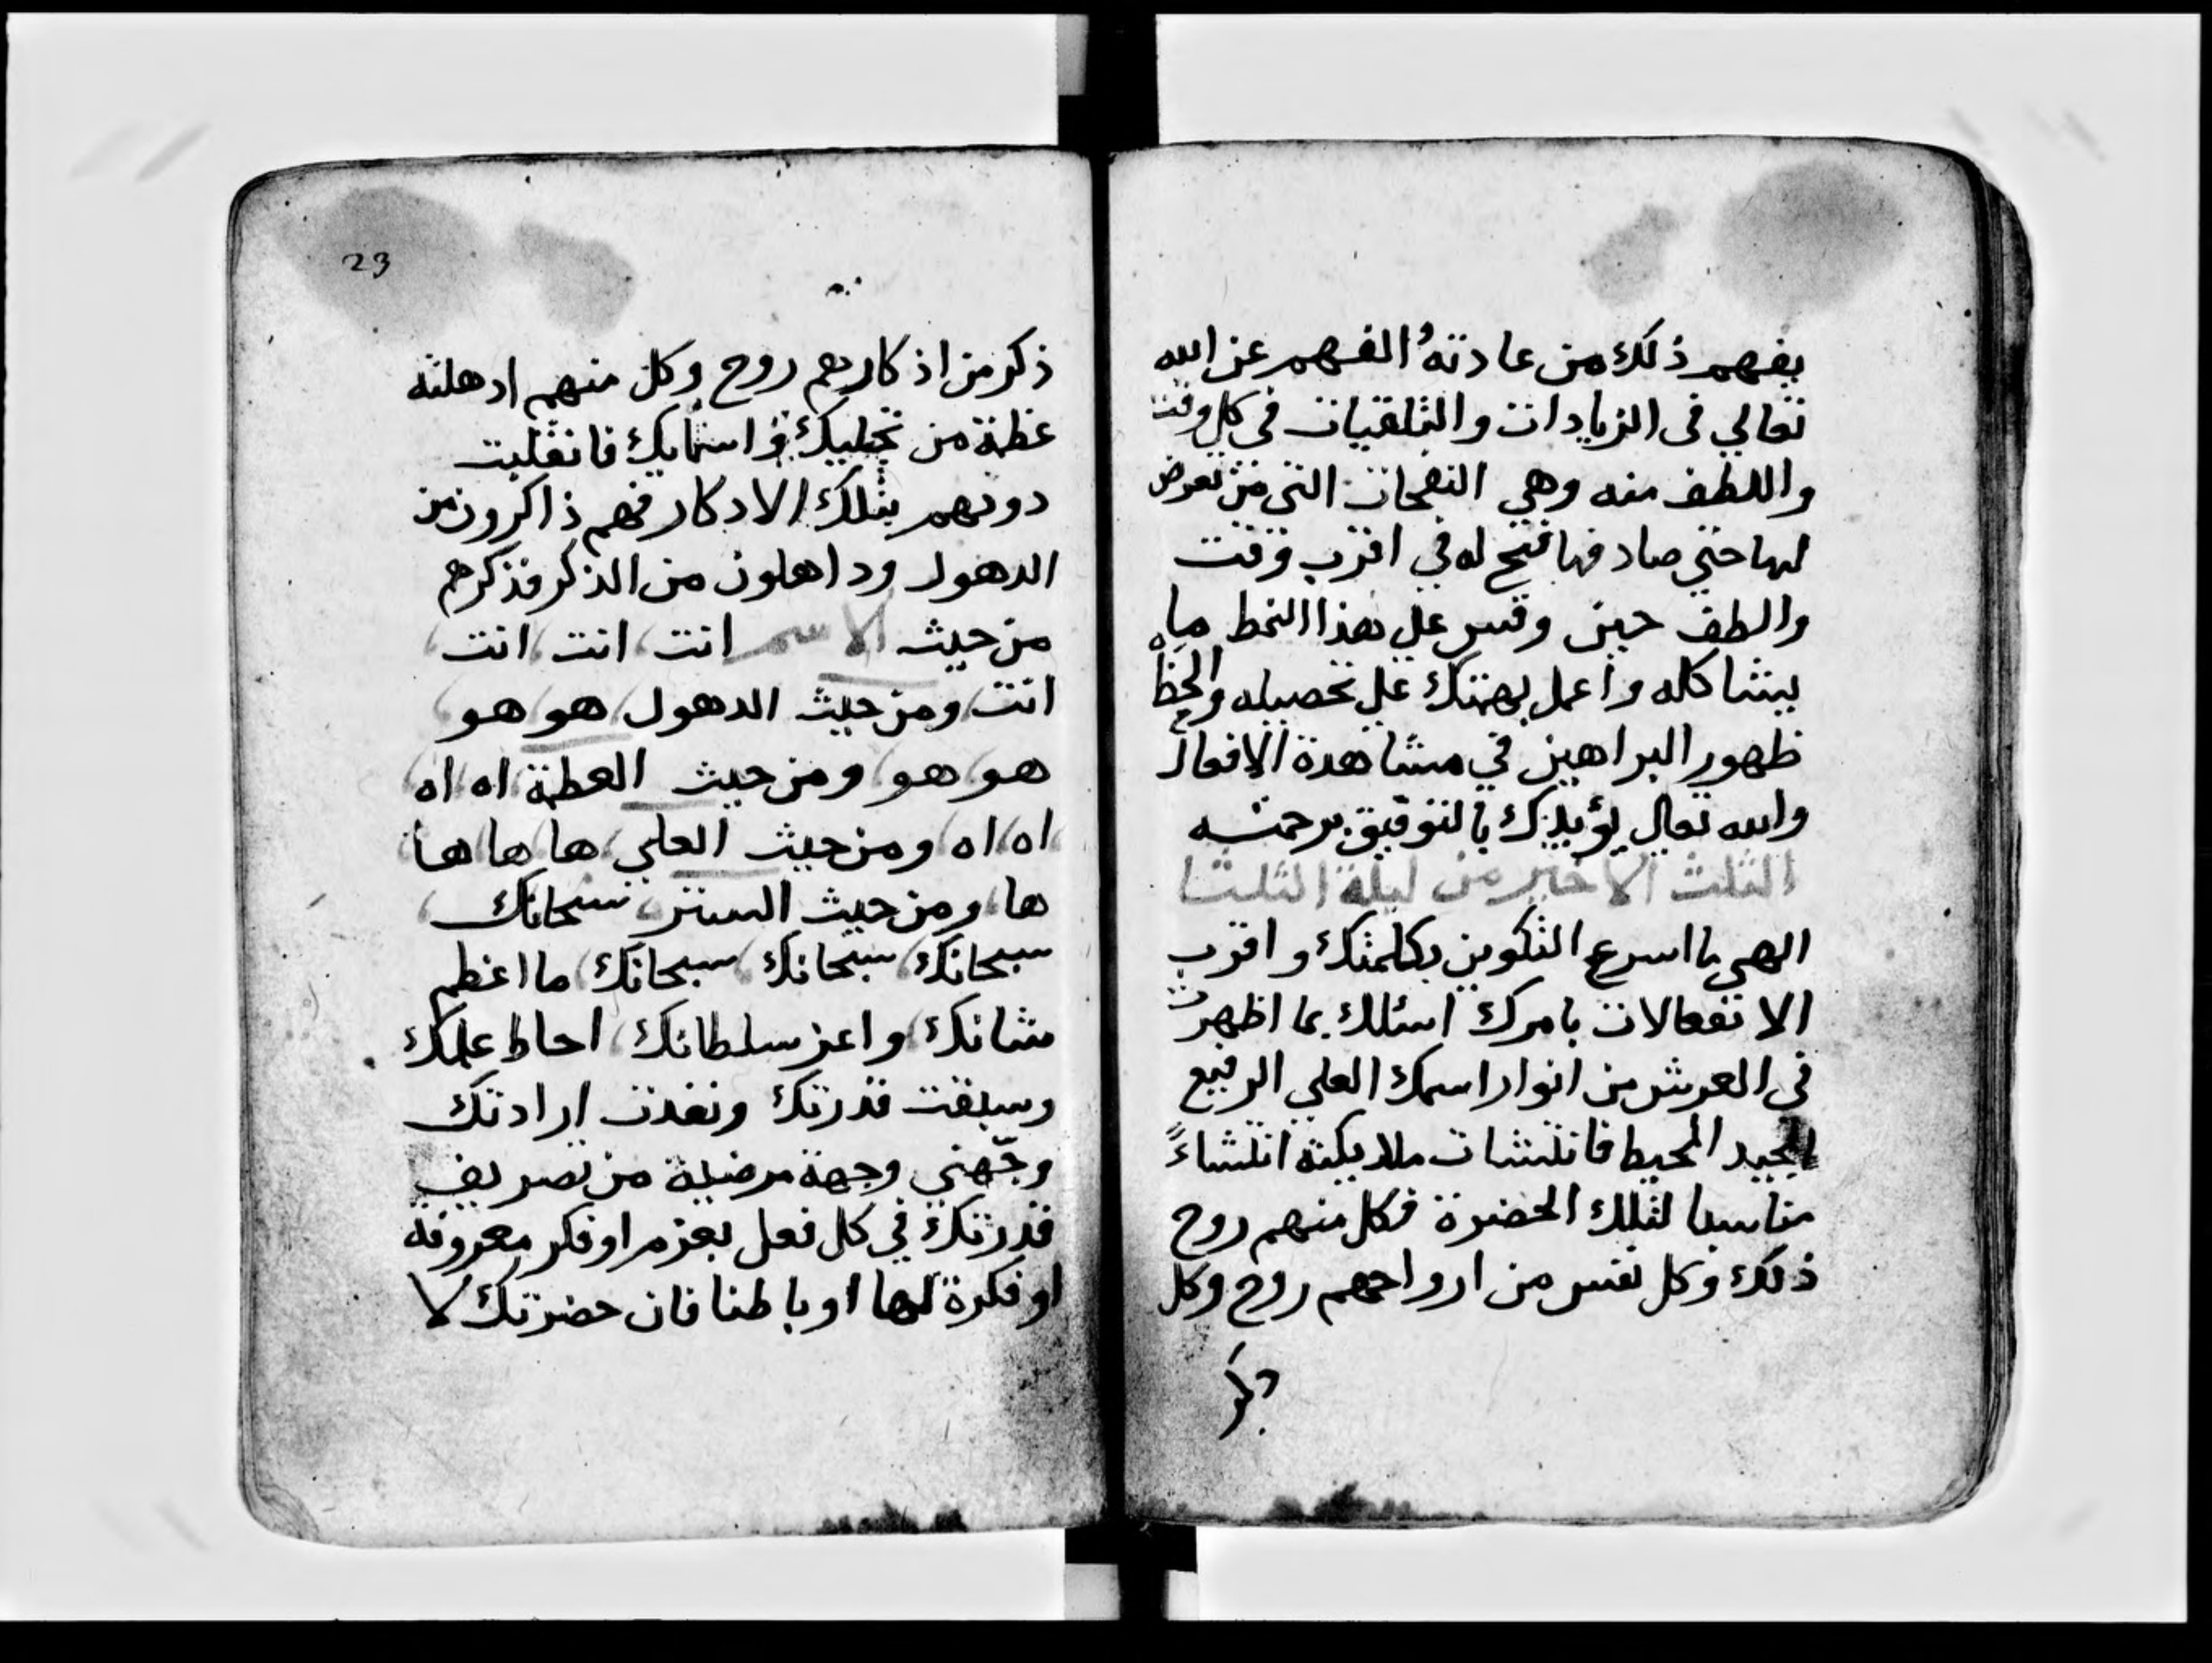 يفهم ذلك من عادته الفهم عن الله
تعالي في الزيادات والتلقيات في كل وقت
واللطف منه وهي النفحات التي من تعرض
لها حتي صادفها فتح له في اقرب وقت
والطف حين وقس علي هذا النمط ما
يشاكله واعمل بهمتك علي تحصيله والحظ
ظهور البراهين في مشاهدة الافعال
والله تعالي يؤيدك بالتوفيق برحمته
الثلث الاخير من ليلة الثلثا
الهي ما اسرع التكوين بكلمتك واقرب
الانفعالات بامرك اسئلك بما اظهرت
في العرش من انوار اسمك العلي الرفيع
المجيد المحيط فانتشات ملايكته انتشاءً
مناسبا لتلك الحضرة فكل منهم روح
ذلك وكل نفس من ارواحهم روح وكل
ذكر
23
ذكر من اذكارهم روح وكل منهم ادهلته
عظمة من تجليك في اسمايك فانفلبت
دوتهم بتلك الادكار فهم ذاكرون من
الدهول وداهلون من الذكر فذكرهم
من حيث الاسم انت انت انت
انت ومن حيث الدهول هو هو
هو هو ومن حيث العظمة اه اه
اه اه ومن حيث العلي ها ها ها
ها ومن حيث الستر سبحانك
سبحانك سبحانك سبحانك ما اعظم
شانك واعز سلطانك احاط علمك
وسبقت قدرتك ونفدت ارادتك
وجّهني وجهة مرضية من تصريف
قدرتك في كل فعل بعزم او فكر معروفة
او فكرة لها او باطنا فان حضرتك لا